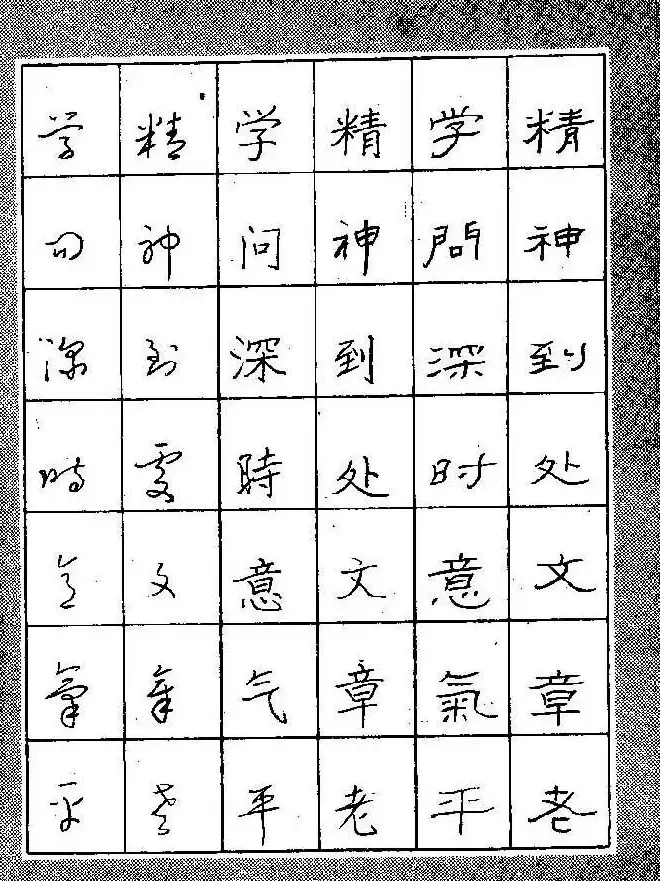 精神到处文章老
学問深时意氣平
精神到处文章老
学问深時意气平
精神到處文章老
学问深時意氣平